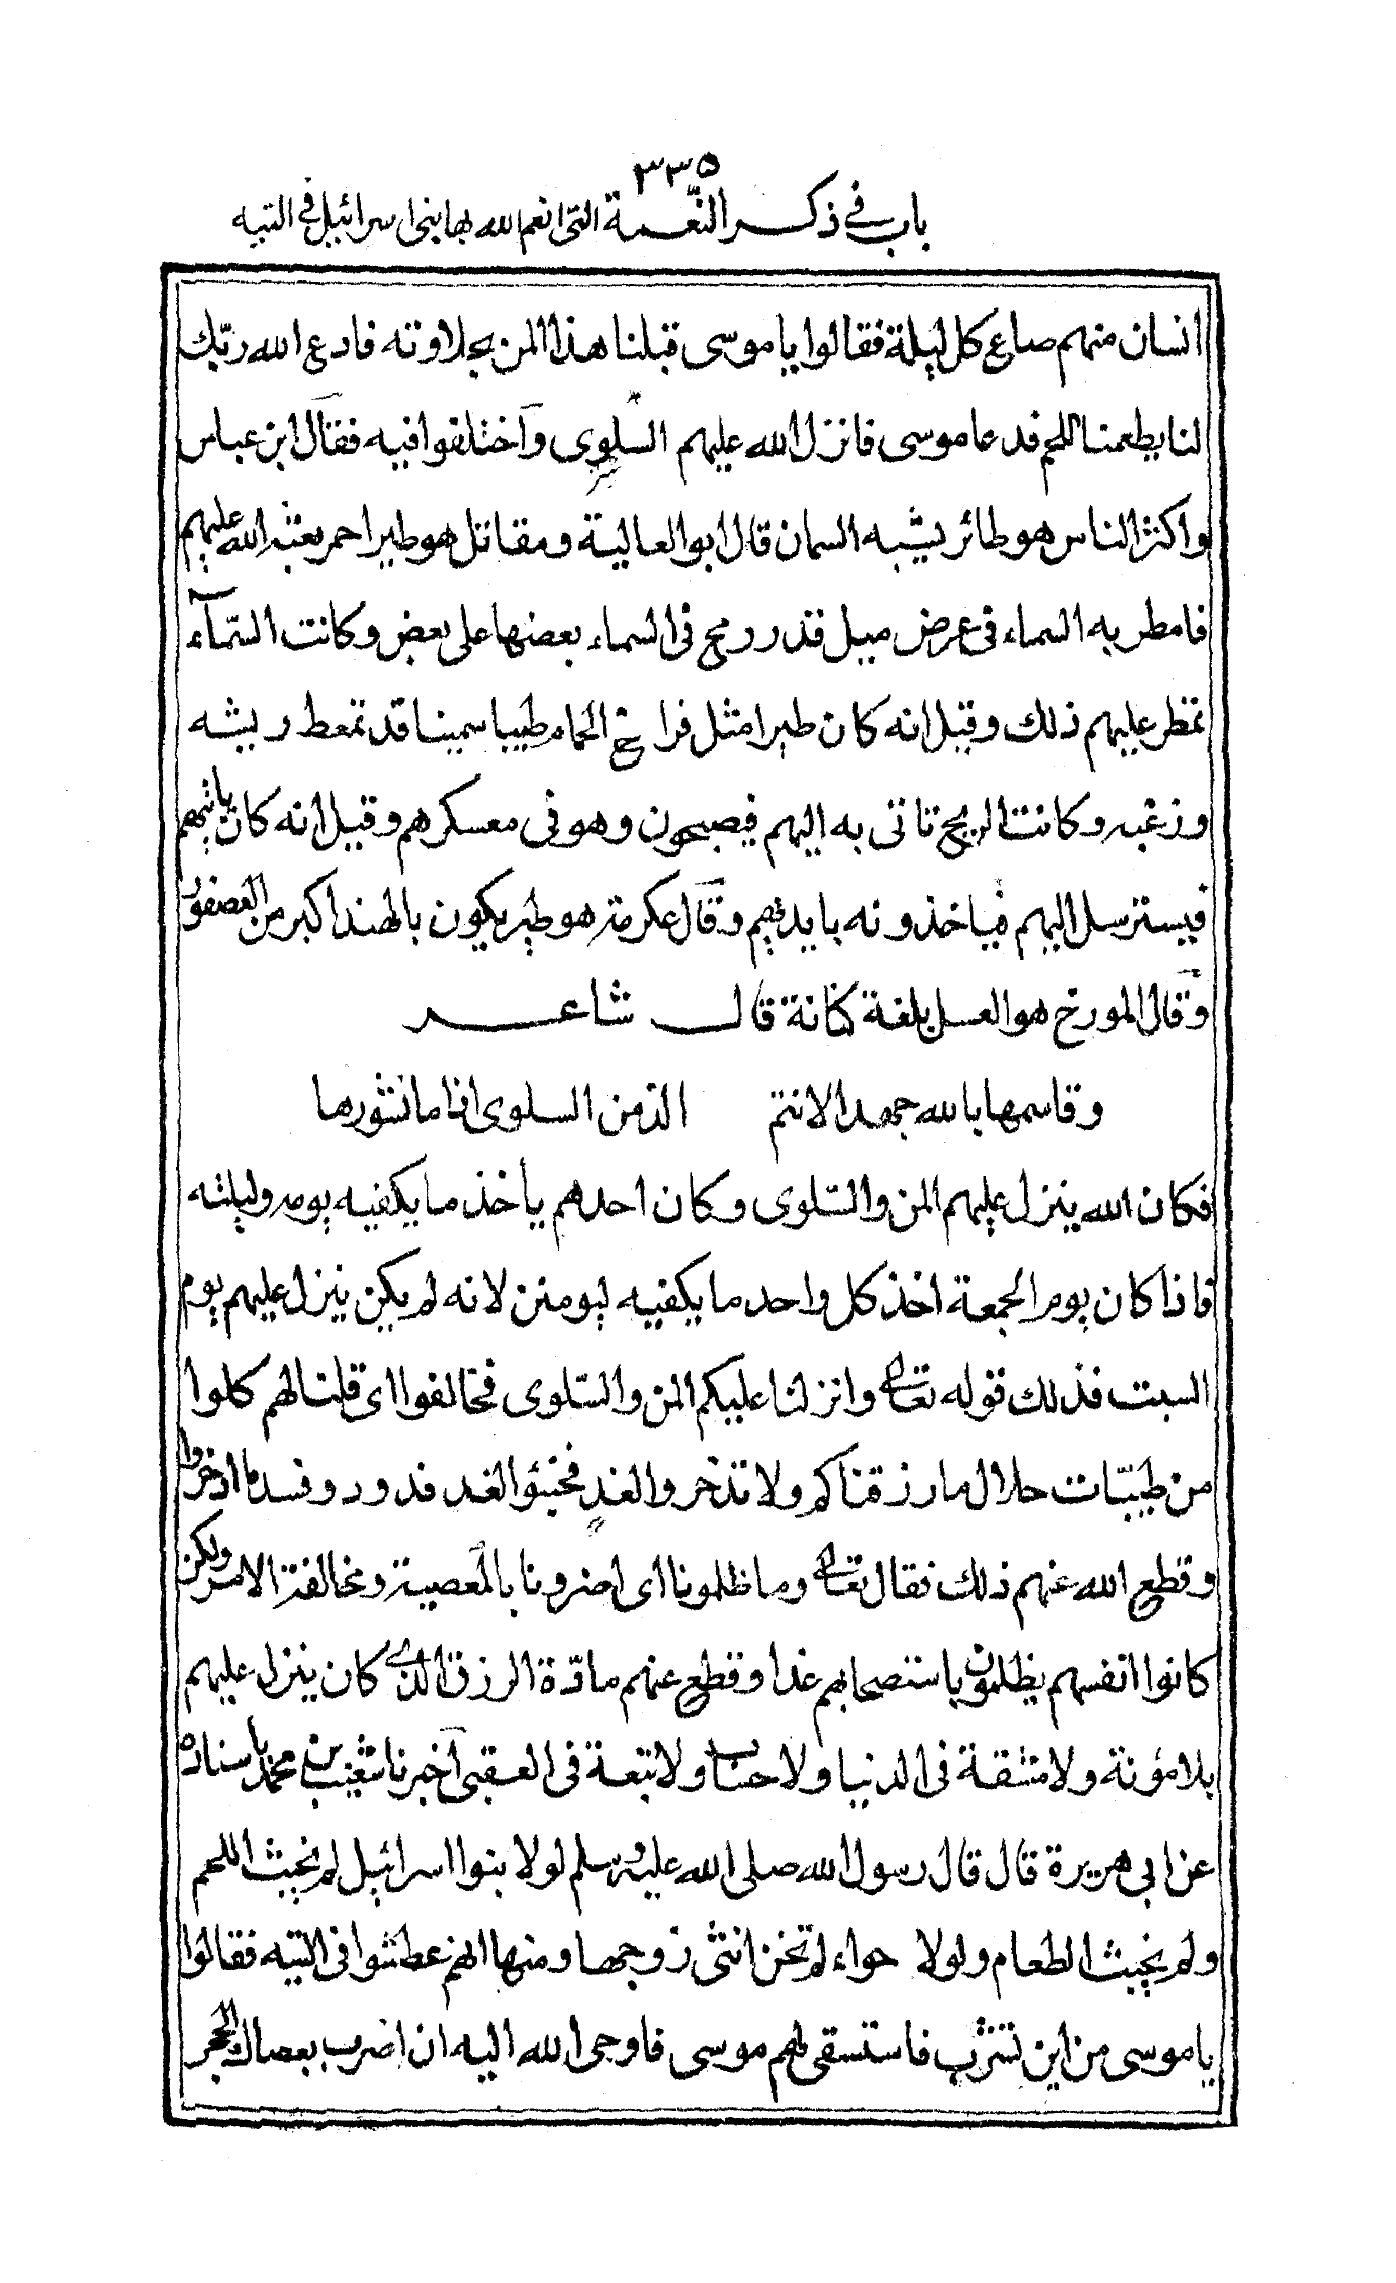 ٣٣٥
باب في ذكر النّعمة التى انعم الله بها بنى اسرائيل في التيه
انسان منهم صاع كل ليلة فقالوا يا موسى قتلنا هذا المن بحلاوته فادع الله ربّك
لنا يطعمنا اللحم فدعا موسى فانزل الله عليهم السّلوى واختلفوا فيه فقال ابن عباس
واكثر الناس هو طائر يشبه السمان قال ابو العالية ومقاتل هو طير احمر بعثه الله عليهم
فامطر به السماء فى عرض ميل قدر رمح فى السماء بعضها على بعض وكانت السّمآء
تمطر عليهم ذلك وقيل انه كان طيرا مثل فراخ الحمام طيبا سمينا قد تمعط ريشه
وزغبه وكانت الريح تاتى به اليهم فيصبحون وهو فى معسكرهم وقيل انه كان ياتيهم
فيسترسل اليهم فياخذونه بايديهم وقال عكرمة هو طير يكون بالهند اكبر من العصفور
وقال المورخ هو العسل بلغة كنانة قال شاعر
وقاسمها بالله جهدا لانتم الذ من السلوى اذا ما نشورها
فكان الله ينزل عليهم المن والسّلوى وكان احدهم يأخذ ما يكفيه يومه وليلته
فاذا كان يوم الجمعة اخذ كل واحد ما يكفيه ليومين لانه لم يكن ينزل عليهم يوم
السبت فذلك قوله تعالى وانزلنا عليكم المن والسّلوى فخالفوا اى قلنا لهم كلوا
من طيّبات حلال ما رزقناكم ولا تدخروا لغد فخبئوا لغد فدود وفسد ما ادخروا
وقطع الله عنهم ذلك فقال تعالى وما ظلمونا اى اضرونا بالمعصية ومخالفة الامر ولكن
كانوا انفسهم يظلمون باستصحابهم غدا وقطع عنهم مادّة الرزق الذي كان ينزل عليهم
بلا مؤنة ولا مشقة فى الدنيا ولا حساب ولا تبعة فى العقبى اخبرنا شعيب بن محمد باسناده
عن ابى هريرة قال قال رسول الله صلى الله عليه وسلم لولا بنوا اسرائيل لم يخبث اللحم
ولم يخبث الطعام ولولا حواء لم تخن انثى زوجها ومنها انهم عطشوا فى التيه فقالوا
يا موسى من اين نشرب فاستسقى لهم موسى فاوحى الله اليه ان اضرب بعصاك الحجر